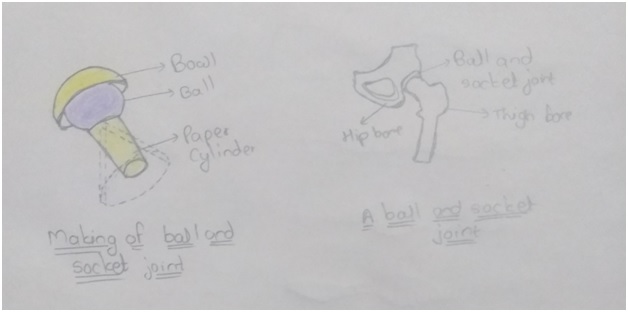 Bowl
Ball
Paper
Cylinder
Making of ball and
socket joint
Ball and
socket joint
Hip bone
Thigh bone
A ball and socket
joint